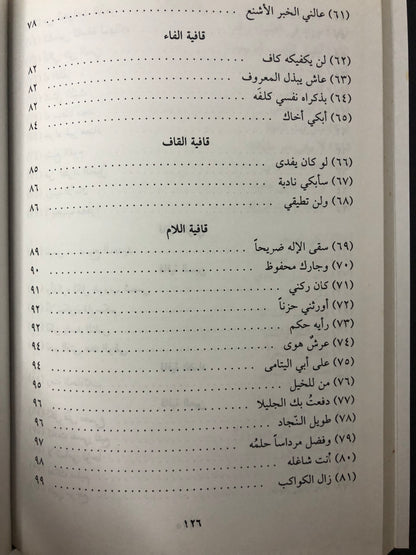 (٦١) عالني الخبر الأشنع ٧٨
قافية الفاء
(٦٢) لن يكفيكه كاف ٨٢
(٦٣) عاش يبذل المعروف ٨٢
(٦٤) بذكراه نفسي كلفَه ٨٢
(٦٥) أبكي أخاك ٨٤
قافية القاف
(٦٦) لو كان يفدى ٨٥
(٦٧) سأبكي نادبة ٨٦
(٦٨) ولن تطيقي ٨٦
قافية اللام
(٦٩) سقى الإله ضريحاً ٨٩
(٧٠) وجارك محفوظ ٩٠
(٧١) كان ركني ٩١
(٧٢) أورثني حزناً ٩٢
(٧٣) رأيه حكم ٩٢
(٧٤) عرشٌ هوى ٩٤
(٧٥) على أبي اليتامى ٩٤
(٧٦) من للخيل ٩٥
(٧٧) دفعتُ بك الجليلا ٩٦
(٧٨) طويل النّجاد ٩٦
(٧٩) وفضل مرداساً حلمُه ٩٧
(٨٠) أنت شاغله ٩٨
(٨١) زال الكواكب ٩٩
١٢٦